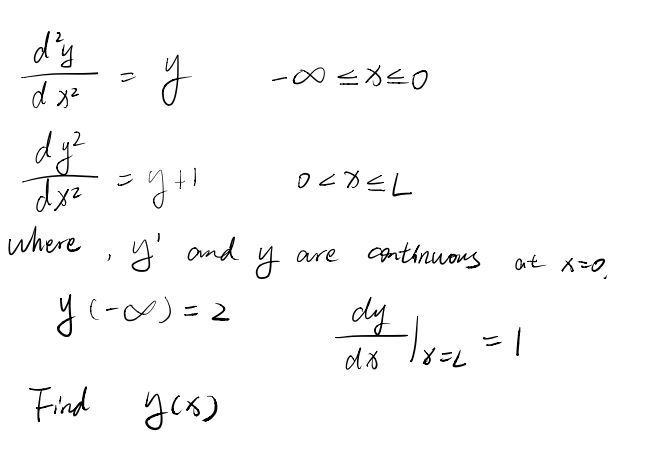 d²y/dx² = y -∞ ≤ x ≤ 0
dy²/dx² = y+1 0 < x ≤ L
where , y' and y are continuous at x=0.
y(-∞) = 2 dy/dx|x=L = 1
Find y(x)